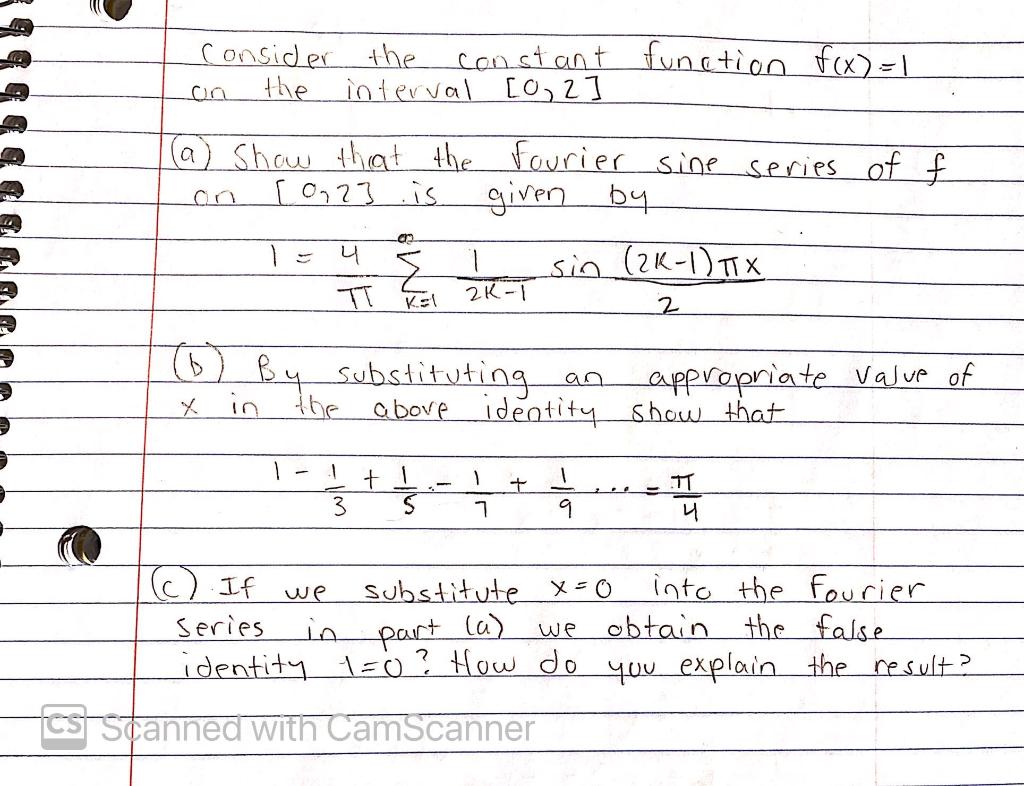 Consider the constant function f(x)=1
on the interval [0,2]
(a) Show that the Fourier sine series of f
on [0,2] is given by
1 = 4/π ∞Σk=1 1/2k-1 sin (2k-1)πx/2
(b) By substituting an appropriate value of
x in the above identity show that
1 - 1/3 + 1/5 - 1/7 + 1/9 ... = π/4
(c) If we substitute x=0 into the Fourier
series in part (a) we obtain the false
identity 1=0? How do you explain the result?
CS Scanned with CamScanner